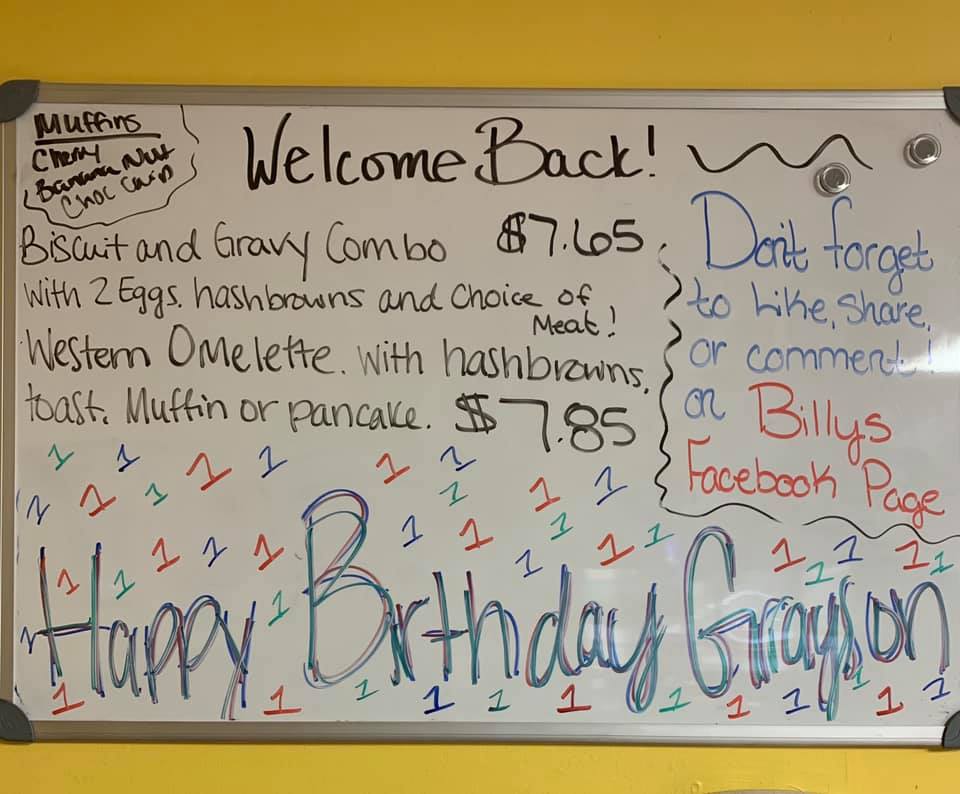 Muffins
Cherry
Banana Nut
Choc Chip
Welcome Back!
Biscuit and Gravy Combo $7.65
with 2 Eggs. hashbrowns and choice of
Meat!
Western Omelette. with hashbrowns.
toast. Muffin or pancake. $7.85
Don't forget
to Like, Share,
or comment!
on Billys
Facebook Page
1 1 1 1 1 1
1 1 1 1 1 1
1 1 1 1 1
1 1 1 1 1 1 1
1 1 1 1 1 1
Happy Birthday Grayson
1 1 1 1 1 1 1 1 1 1 1